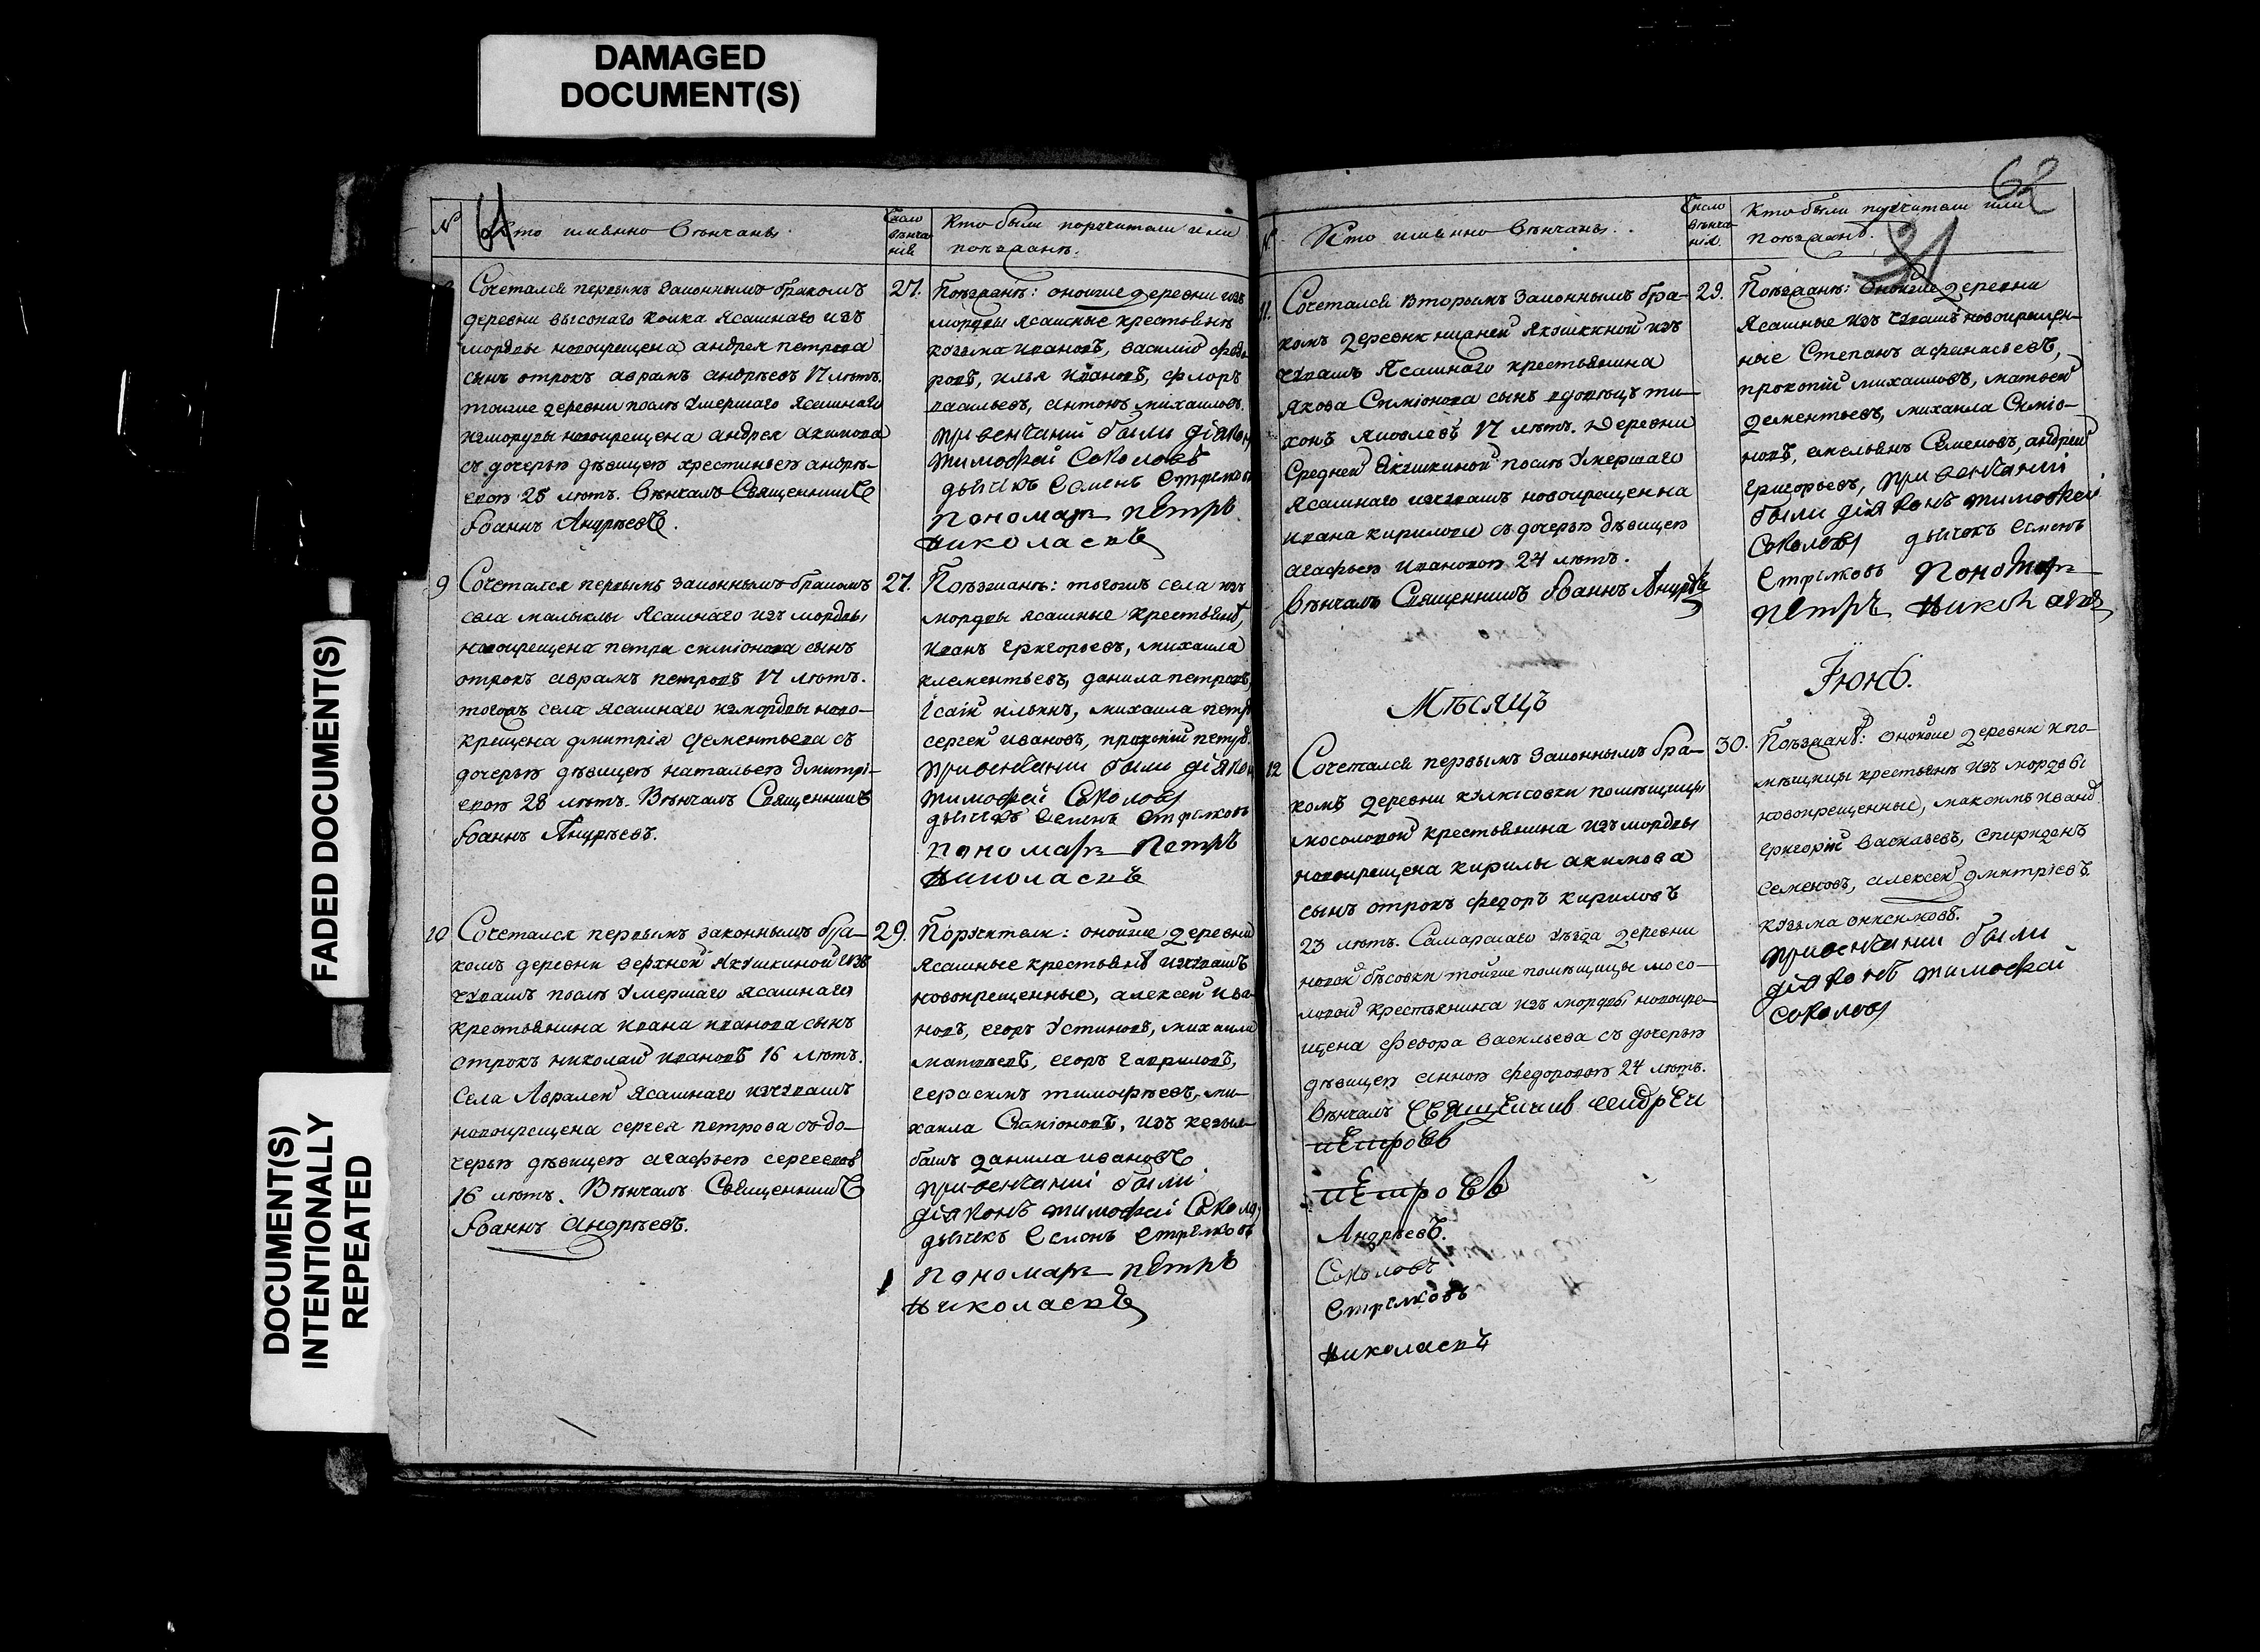 DAMAGED
DOCUMENT(S)
FADED DOCUMENT(S)
DOCUMENT(S)
INTENTIONALLY
REPEATED
61
№
Кто имянно венчаны.
Число
венча
ния
Кто были поручители или
поезжанѣ.
Сочетался первымъ законнымъ бракомъ
деревни высокаго колка ясашнаго изъ
мордвы новокрещена андрея петрова
сынъ отрокъ аврамъ андрѣевъ 17 лѣтъ.
тоиже деревни послѣ умершаго ясашнаго
измордвы новокрещена андрея акимова
съ дочерью дѣвицею хрестиньею андрѣ-
евою 25 лѣтъ. Вѣнчалъ Священникъ
Іоаннъ Андрѣевъ.
27.
Поѣзжанѣ: оноиже деревни изъ
мордвы ясашные крестьянѣ
козьма ивановъ, василiй федо
ровъ, илья ивановъ, флоръ
васильевъ, антонъ михаиловъ.
при венчанiй были дiякон
тимофей Соколовъ
дьячекъ Семенъ Стрелковъ
пономарь петръ
николаевъ
9
Сочетался первымъ законнымъ бракомъ
села малыклы ясашнаго изъ мордвы
новокрещена петра симiонова сынъ
отрокъ аврамъ петровъ 17 лѣтъ.
тогожъ села ясашнаго измордвы ново-
крещена дмитрiя дементьева съ
дочерью дѣвицею натальею дмитрi-
евою 28 лѣтъ. Вѣнчалъ Священникъ
Іоаннъ Андрѣевъ.
27.
Поѣзжанѣ: тогожъ села изъ
мордвы ясашные крестьянѣ,
иванъ григорьевъ, михаила
клементьевъ, данила петровъ,
Iсаiй ильинъ, михаила петр
сергей ивановъ, прокопiй петров.
привенчании были дiякон
тимофей Соколовъ
дьячекъ Семенъ Стрелковъ
пономарь Петръ
николаевъ
10
Сочетался первымъ законнымъ бра-
комъ деревни верхней якушкиной изъ
чувашъ послѣ умершаго ясашнаго
крестьянина ивана иванова сынъ
отрокъ николай ивановъ 16 лѣтъ.
села Авралей ясашнаго изчувашъ
новокрещена сергея петрова съ до-
черью дѣвицею агафьею сергеевой
16 лѣтъ. Вѣнчалъ Священникъ
Іоаннъ андрѣевъ.
29.
Поручители: оноиже деревни
ясашные крестьянѣ изчувашъ
новокрещенные, алексей ива-
новъ, егоръ Устиновъ, михаила
матвѣевъ, егоръ гавриловъ,
герасимъ тимофѣевъ, ми-
хаила Симiоновъ, изъ кезыл-
башъ данила ивановъ
привенчанiй были
дiяконъ тимофей Соколо
дьячекъ Семенъ Стрелковъ
пономарь петръ
николаевъ
62
31
Кто имянно вѣнчаны.
Число
вѣнча
нiя.
Кто были поручители или
поѣзжанѣ.
11.
Сочетался вторымъ законнымъ бра-
комъ деревни нижней якушкиной изъ
чувашъ ясашнаго крестьянина
якова Симiонова сынъ вдовецъ ти-
хонъ яковлевъ 17 лѣтъ. деревни
Средней якушкиной послѣ умершаго
ясашнаго изчувашъ новокрещенна
ивана кирилова съ дочерью дѣвицею
агафьею ивановою 24 лѣтъ.
вѣнчалъ Священникъ Іоаннъ Андрѣевъ
29.
Поѣзжанѣ: оноиже деревни
ясашные изъ чувашъ новокрещен-
ные Степанъ афанасьевъ,
прокопiй михаиловъ, матвей
дементьевъ, михаила Симiо-
новъ, емельянъ Семеновъ, андрей
григорьевъ, при венчанiй
были дiяконъ тимофей
Соколовъ дьячекъ Семенъ
Стрелковъ Пономарь
петръ николаевъ
Мѣсяцъ
Iюнь.
12
Сочетался первымъ законнымъ бра-
комъ деревни помѣщицы
мосоловой крестьянина изъ мордвы
новокрещена кирилы акимова
сынъ отрокъ федоръ кириловъ
23 лѣтъ. Самарскаго уѣзда деревни
новой бѣсовки тоиже помѣщицы мосо-
ловой крестьянина изъ мордвы новокре-
щена федора васильева съ дочерью
дѣвицею анною федоровою 24 лѣтъ.
вѣнчалъ Священникъ андрей
петровъ
петровъ
Андрѣевъ.
Соколовъ
Стрелковъ
николаевъ
30.
Поѣзжанѣ: оноиже деревни и по-
мѣщицы крестьянѣ изъ мордвы
новокрещенные, максимъ иванов
григорiй васильевъ, спиридонъ
семеновъ, алексей дмитрiевъ
кузьма онисимовъ.
привенчании были
дiяконъ тимофей
соколовъ